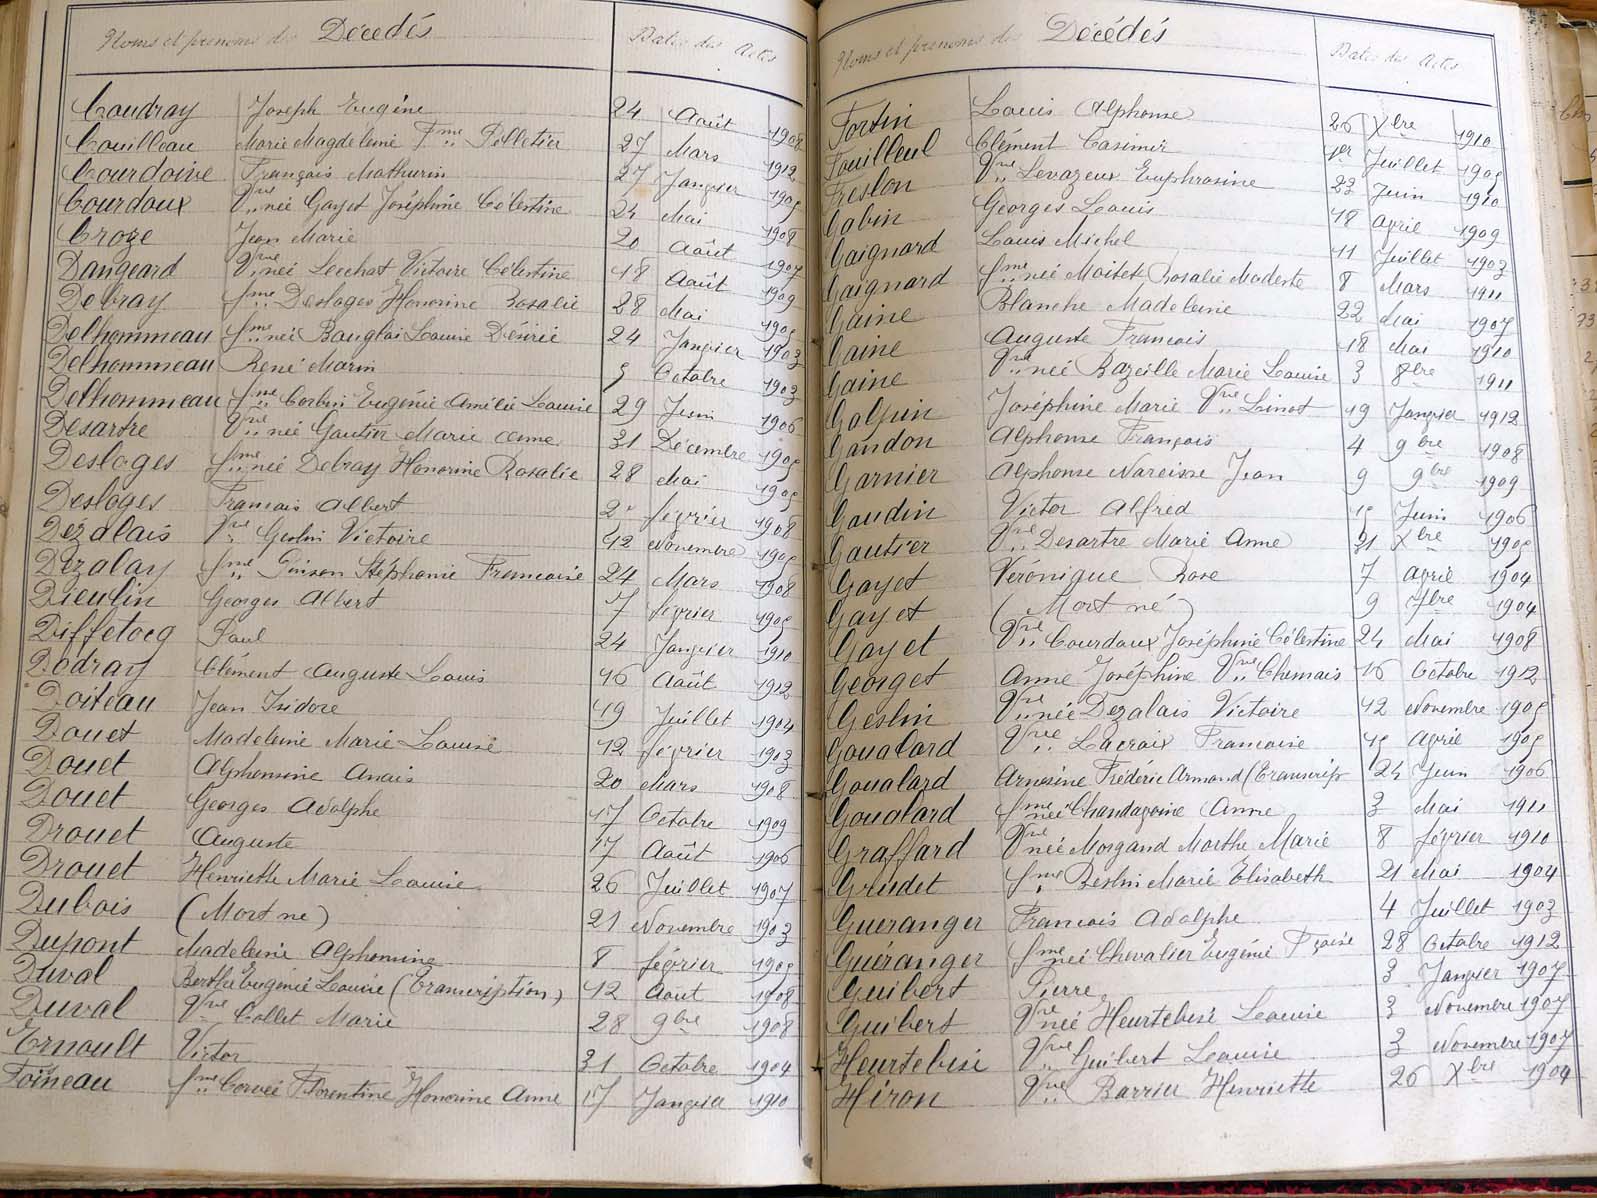 Noms et prenoms des Décédés Dates des Actes
Coudray Joseph Eugène 24 Août 1908
Couilleau Marie Magdeleine Fme Pelletier 27 Mars 1912
Courdoine Français Mathurin 27 Janvier 1905
Courdoux Vve née Gayet Joséphine Célestine 24 Mai 1908
Croze Jean Marie 20 Août 1907
Dangeard Vve née Lechat Victoire Célestine 18 Août 1909
Debray fme Desloges Honorine Rosalie 28 Mai 1905
Delhommeau fme née Bauglai Louise Désirié 24 Janvier 1903
Delhommeau René Marin 5 Octobre 1903
Delhommeau fme Corbin Eugénie Amélie Louise 29 Juin 1906
Desartre Vve née Gautier Marie Anne 31 Décembre 1905
Desloges fme née Debray Honorine Rosalie 28 Mai 1905
Desloges Francais Albert février 1908
Dézalais Vve Geslin Victoire 12 Novembre 1905
Dézalay fme Stéphanie Francoise 24 Mars 1908
Dieulin Georges Albert 7 février 1905
Diffetocq Paul 24 Janvier 1910
Dodray Clément Auguste Louis 16 Août 1912
Doiteau Jean Isidore 19 Juillet 1904
Douet Madeleine Marie Louise 12 février 1903
Douet Alphonsine Anais 20 Mars 1908
Douet Georges Adolphe 17 Octobre 1909
Drouet Auguste 17 Août 1906
Drouet Henriette Marie Louise 26 Juillet 1907
Dubois (Mort né) 21 Novembre 1903
Dupont Madeleine Alphonsine 8 février 1905
Duval Berthe Eugénie Louise (Transcription) 12 Août 1908
Duval Vve Collet Marie 28 9bre 1908
Ernoult Victor 31 Octobre 1904
Foineau fme Corvée Florentine Honorine Anne 17 Janvier 1910
Noms et prenoms des Décédés Dates des Actes
Fortin Louis Alphonse 26 Xbre 1910
Fouilleul Clément Casimir 1er Juillet 1905
Freslon Vve Levazeux Euphrasine 23 Juin 1910
Gabin Georges Louis 18 Avril 1909
Gaignard Louis Michel 11 Juillet 1903
Gaignard fme née Moitet Rosalie Modeste 8 Mars 1911
Gaine Blanche Madeleine 22 Mai 1907
Gaine Auguste Francois 18 Mai 1910
Gaine Vve née Bazeille Marie Louise 3 8bre 1911
Galpin Joséphine Marie Vve Linot 19 Janvier 1912
Gandon Alphonse François 4 9bre 1908
Garnier Alphonse Narcisse Jean 9 9bre 1909
Gaudin Victor Alfred 15 Juin 1906
Gautier Vve Desartre Marie Anne 31 Xbre 1905
Gayet Véronique Rose 7 Avril 1904
Gayet (Mort né) 9 7bre 1904
Gayet Vve Courdoux Joséphine Célestine 24 Mai 1908
Georget Anne Joséphine Vve Chemais 16 Octobre 1912
Geslin Vve née Dezalais Victoire 12 Novembre 1905
Goualard Vve Lacroix Francoise 15 Avril 1905
Goualard Frédéric Armand (Transcrip 24 Juin 1906
Goualard fme née Chandavoine Anne 3 Mai 1911
Graffard Vve née Morgand Marthe Marie 8 février 1910
Grudet fme Beslin Marie Elisabeth 21 Mai 1904
Guéranger Francois Adolphe 4 Juillet 1903
Guéranger fme née Chevalier Eugénie Fçoise 28 Octobre 1912
Guibert Pierre 3 Janvier 1907
Guibert Vve née Heurtebise Louise 3 Novembre 1907
Heurtebise Vve Guibert Louise 3 Novembre 1907
Hiron Vve Barrier Henriette 26 Xbre 1904